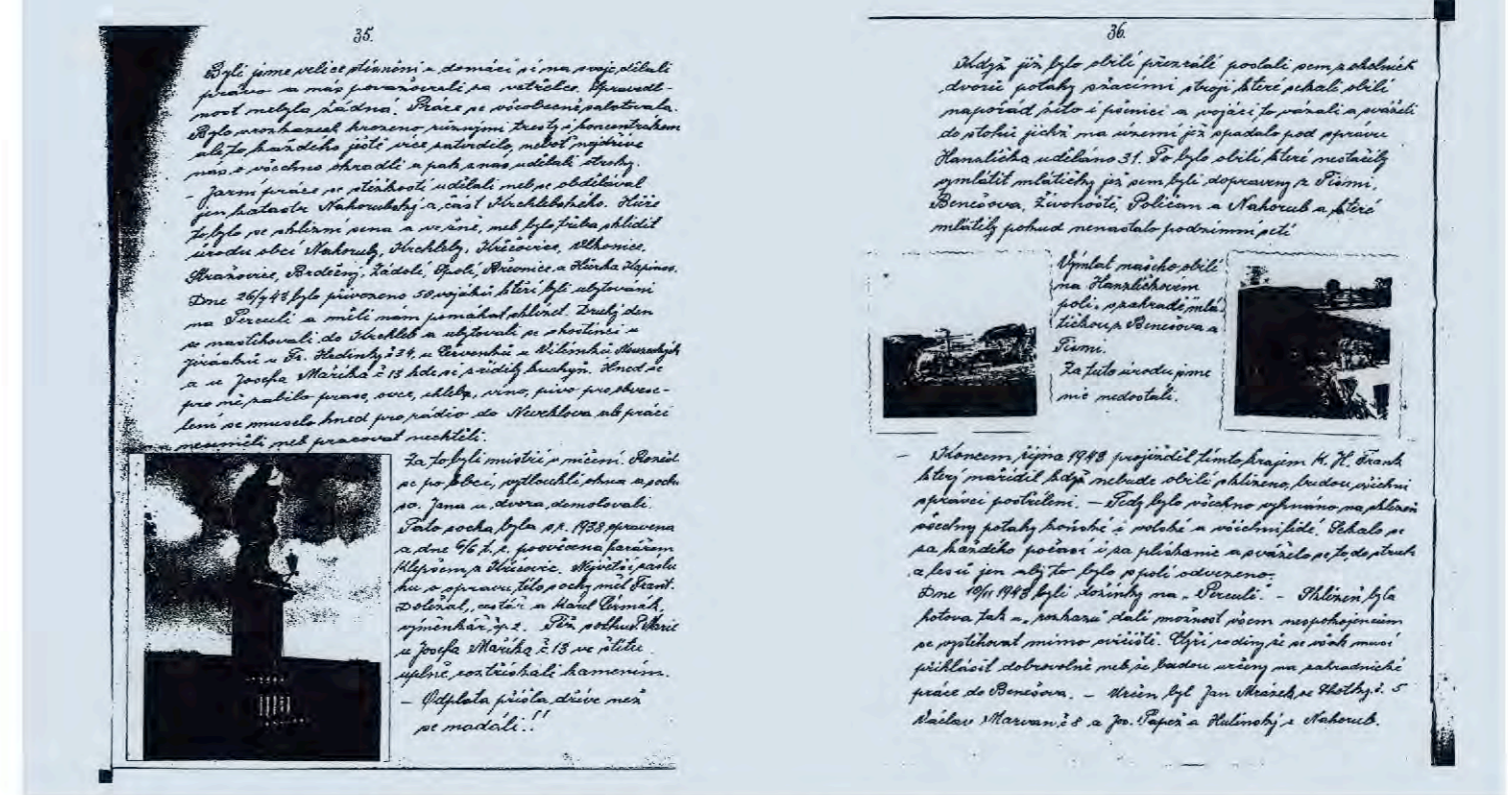 35.
Byli jsme velice stísněni a domácí si na svoje dělali
právo a nás považovali za vetřelce. Spravedl-
nost nebyla žádná. Práce se všeobecně salotovala.
Bylo v rozkazech hrozeno různými tresty i koncentrákem
ale to každého ještě více zatvrdilo, neboť nejdříve
nás o všechno okradli a pak z nás udělali otroky.
– Jarní práce se stěžkostí udělali neb se obdělával
jen katastr Nahorubský a část Krchlebského. Hůře
to bylo se sklizní sena a ve žně, neb bylo třeba sklidit
úrodu obcí Nahoruby, Krchleby, Křečovice, Vlkonice,
Stražovice, Brdečný, Zádolí, Opolí, Březnice a Hůrka Kapinos.
Dne 26/7 43 bylo přivezeno 50 vojáků kteří byli ubytováni
na Perculi a měli nam pomáhat sklízet. Druhý den
se nastěhovali do Krchleb a ubytovali se v hostinci u
Jirásků u Fr. Hedinky č 34, u Červenků u Vilímků
a u Josefa Maříka č 13 kde si zřídily kuchyň. Hned se
pro ně zabilo prase, ovce, chleba, víno, pivo pro obvese-
lení se muselo hned pro rádio do Neveklova ale práci
neuměli neb pracovat nechtěli.
Za to byli mistři v ničení.
se po obci, vytloukli okna a sochu
sv. Jana u dvora demolovali.
Tato socha byla v r. 1938 opravena
a dne 6/6 t. r. posvěcena farářem
Klepšem z Křečovic. Největší záslu
hu o opravu této sochy měl Frant.
Doležal, cestář a Karel Čermák,
výměnkář, čp 2. Též sošku P. Marie
u Josefa Maříka č 13 ve štítu
uplně roztřískali kamením.
– Odplata přišla dříve než
se nadáli!!
36.
Když již bylo obilí přezrálé poslali sem z okolních
dvorů potahy s žacími stroji které sekali obilí
napořád žito i pšenici a vojáci to vázali a sváželi
do stohů jichž na území jež spadalo pod správu
Hanzlíčka uděláno 31. To bylo obilí které nestačily
vymlátit mlátičky jež sem byli dopraveny z Tismi,
Benešova, Živohoště, Poličan a Nahorub a které
mlátily pokud nenastalo podzimní setí
Výmlat našeho obilí
na Hanzlíčkovem
poli, v zahradě mlá-
tičkou z Benešova a
Tismi.
Za tuto úrodu jsme
nic nedostali.
– Koncem října 1943 projížděl tímto krajem K. H. Frank
který nařídil když nebude obilí sklizeno, budou všichni
správci postříleni. – Tedy bylo všechno vyhnáno na sklizeň
všechny potahy koňské i volské a všichni lidé. Sekalo se
za každého počasí i za plískanic a sváželo se to do stodol
a lesů jen aby to bylo s polí odvezeno.
Dne 10/11 1943 byli dožínky na „Perculi". – Sklizeň byla
hotova tak z „rozkazu" dali možnost všem nespokojencům
se vystěhovat mimo cvičiště. Čtyři rodiny že se však musí
přihlásit dobrovolně neb že budou určeny na zahradnické
práce do Benešova. – Určen byl Jan Mrázek ze Lhotky č. 5
Václav Marvan č 8 a Jos. Papež a Hulínský z Nahorub.